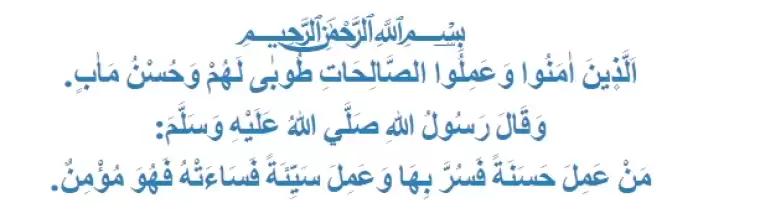 بِسْــــمِ اللهِ الرَّحْمٰنِ الرَّحِيــــمِ
اَلَّذِينَ اٰمَنُوا وَعَمِلُوا الصَّالِحَاتِ طُوبٰى لَهُمْ وَحُسْنُ مَاٰبٍ.
وَقَالَ رَسُولُ اللهِ صَلَّي اللهُ عَلَيْهِ وَسَلَّمَ:
مَنْ عَمِلَ حَسَنَةً فَسُرَّ بِهَا وَعَمِلَ سَيِّئَةً فَسَاءَتْهُ فَهُوَ مُؤْمِنٌ.